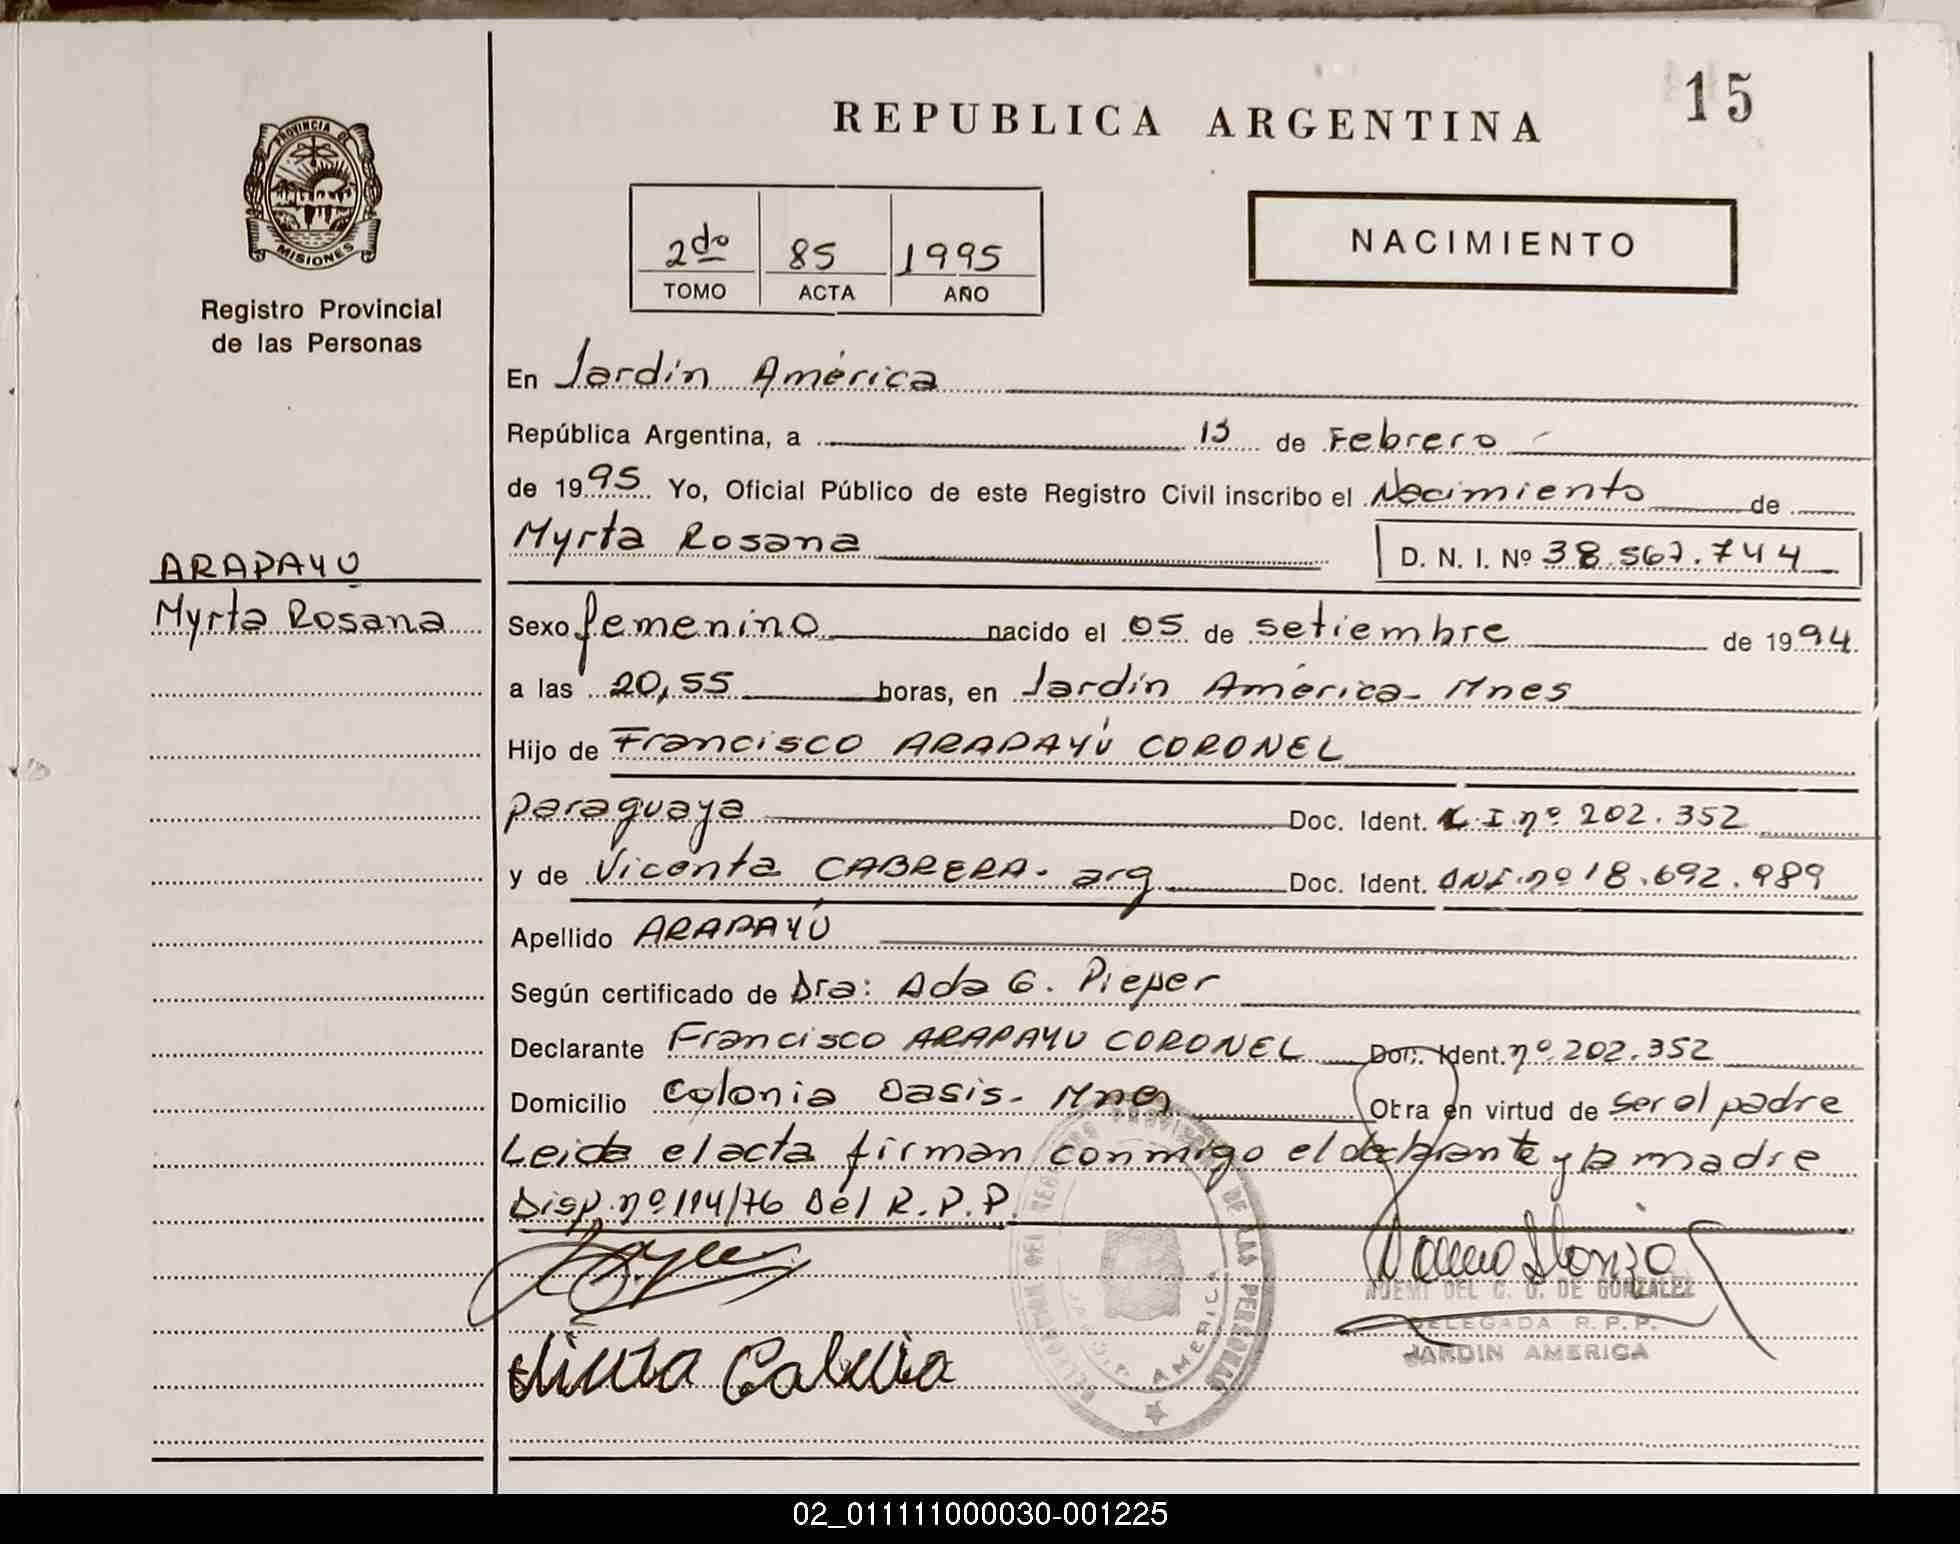 15
REPUBLICA ARGENTINA
PROVINCIA DE
MISIONES
Registro Provincial
de las Personas
2do 85 1995
TOMO ACTA AÑO
NACIMIENTO
En Jardín América
República Argentina, a 13 de Febrero
de 1995 Yo, Oficial Público de este Registro Civil inscribo el Nacimiento de
Myrta Rosana D. N. I. Nº 38.567.744
ARAPAYÚ
Myrta Rosana
Sexo femenino nacido el 05 de setiembre de 1994
a las 20,55 horas, en Jardín América - Mnes
Hijo de Francisco ARAPAYÚ CORONEL
paraguaya Doc. Ident. C.I. nº 202.352
y de Vicenta CABRERA - arg Doc. Ident. DNI. nº 18.692.989
Apellido ARAPAYÚ
Según certificado de Dra: Ada G. Pieper
Declarante Francisco ARAPAYU CORONEL Doc. Ident. nº 202.352
Domicilio Colonia Oasis - Mnes Obra en virtud de ser el padre
Leida el acta firman conmigo el declarante y la madre
Disp. nº 114/76 Del R.P.P.
DELEGACION DEL REGISTRO PROVINCIAL DE LAS PERSONAS
JARDIN AMERICA
NOEMI DEL C. O. DE GONZALEZ
DELEGADA R.P.P.
JARDIN AMERICA
02_011111000030-001225